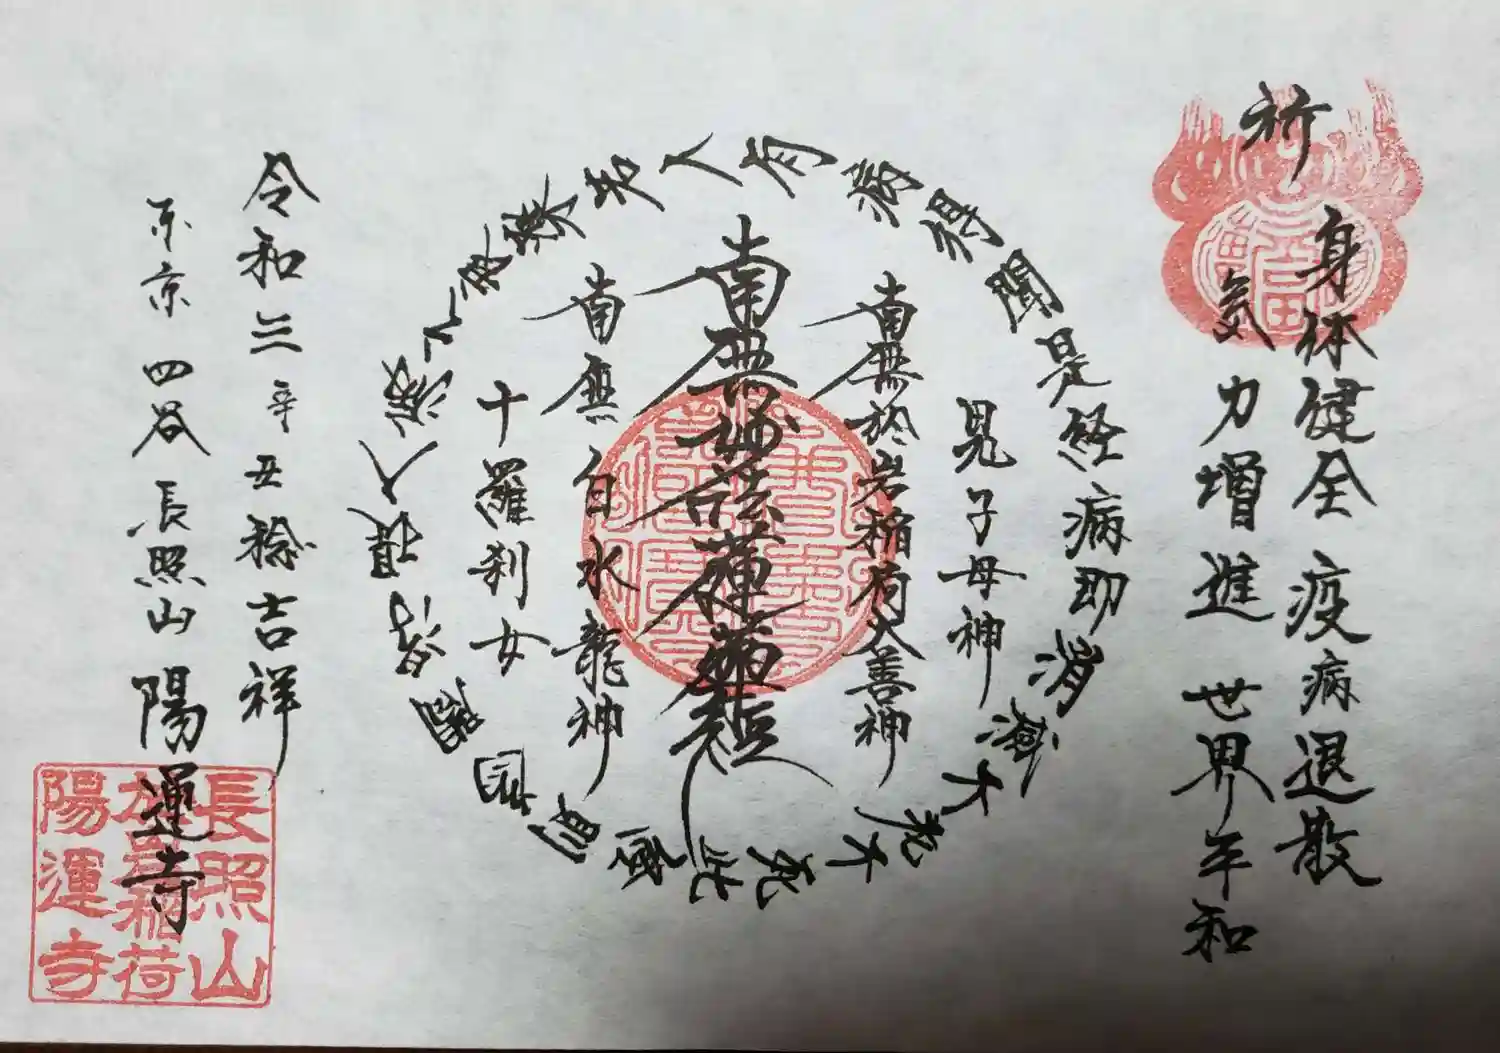 祈
身体健全 疫病退散
気力増進 世界平和
此経則為閻浮提人病之良薬若人有病得聞是経病即消滅不老不死
鬼子母神
南無於岩稲荷大善神
南無妙法蓮華経
南無白水龍神
十羅刹女
令和三辛丑稔吉祥
東京 四谷 長照山 陽運寺
長照山
於岩稲荷
陽運寺